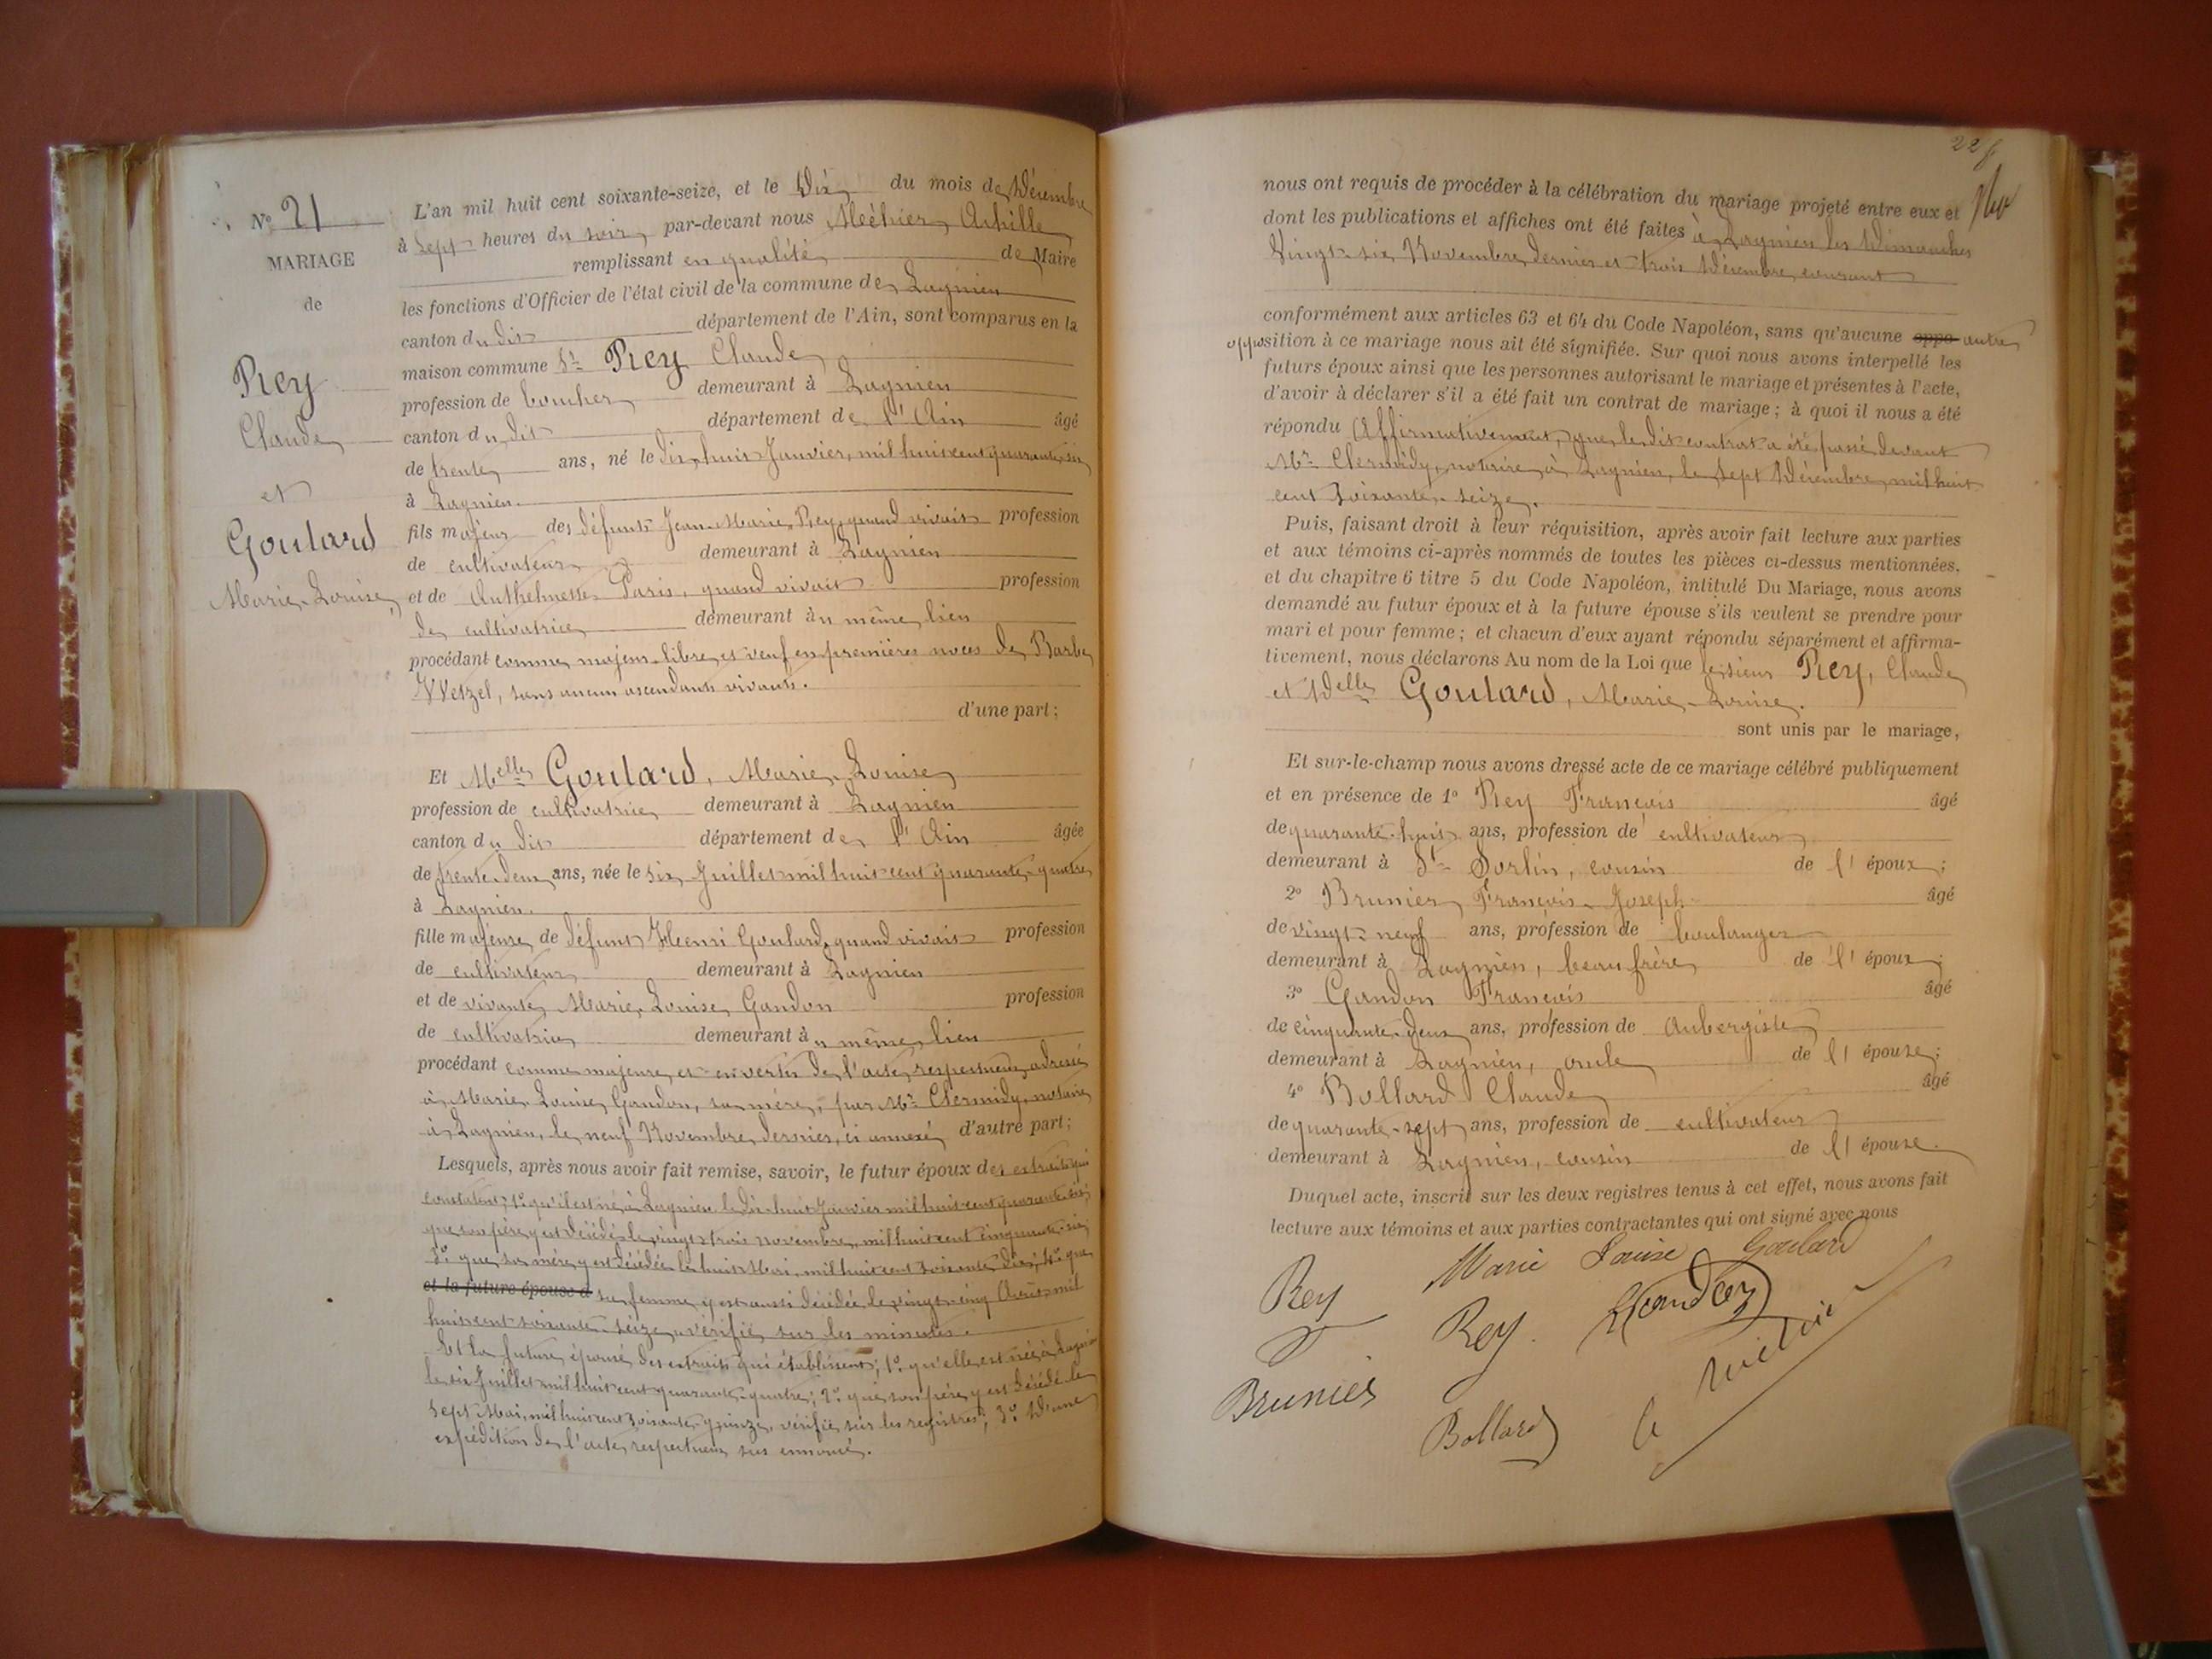 N° 21
MARIAGE
de
Rey
Claude
et
Goulard
Marie-Louise
L'an mil huit cent soixante-seize, et le Dix du mois de Décembre
à Sept heures du soir, par-devant nous Méhier Achille
remplissant en qualité de Maire
les fonctions d'Officier de l'état civil de la commune de Lagnieu
canton du dit département de l'Ain, sont comparus en la
maison commune Sr Rey Claude
profession de boucher demeurant à Lagnieu
canton du dit département de l'Ain âgé
de trente ans, né le dix huit Janvier, mil huit cent quarante six
à Lagnieu.
fils majeur des défunts Jean-Marie Rey, quand vivait profession
de cultivateur demeurant à Lagnieu
et de Anthelmette Paris, quand vivait profession
de cultivatrice demeurant au même lieu
procédant comme majeur libre et veuf en premières noces de Barbe
Wetzel, sans aucun ascendants vivants.
d'une part;
Et Melle Goulard, Marie-Louise
profession de cultivatrice demeurant à Lagnieu
canton du dit département de l'Ain âgée
de trente-deux ans, née le six Juillet mil huit cent quarante-quatre
à Lagnieu.
fille majeure de défunt Henri Goulard, quand vivait profession
de cultivateur demeurant à Lagnieu
et de vivante Marie Louise Gandon profession
de cultivatrice demeurant au même lieu
procédant comme majeure et en vertu de l'acte respectueux adressé
à Marie Louise Gandon, sa mère, par Mr Clermidy, notaire
à Lagnieu, le neuf Novembre dernier, ci annexé d'autre part;
Lesquels, après nous avoir fait remise, savoir, le futur époux des extraits qui
constatent; 1° qu'il est né à Lagnieu le dix-huit Janvier mil huit cent quarante six;
que son père y est décédé le vingt trois novembre, mil huit cent cinquante-six;
3° que sa mère y est décédée le huit Mai, mil huit cent soixante dix; 4° que
et la future épouse d sa femme y est aussi décédée le vingt-cinq Avril mil
huit cent soixante-seize, vérifié sur les minutes.
Et la future épouse des extraits qui établissent; 1° qu'elle est née à Lagnieu
le six Juillet mil huit cent quarante-quatre; 2° que son père y est décédé le
sept Mai, mil huit cent soixante-quinze, vérifié sur les registres; 3° D'une
expédition de l'acte respectueux sus énoncé.
nous ont requis de procéder à la célébration du mariage projeté entre eux et
dont les publications et affiches ont été faites à Lagnieu les Dimanches
Vingt-six Novembre dernier et trois Décembre courant
conformément aux articles 63 et 64 du Code Napoléon, sans qu'aucune oppo autre
opposition à ce mariage nous ait été signifiée. Sur quoi nous avons interpellé les
futurs époux ainsi que les personnes autorisant le mariage et présentes à l'acte,
d'avoir à déclarer s'il a été fait un contrat de mariage; à quoi il nous a été
répondu Affirmativement, que le dit contrat a été passé devant
Mr Clermidy, notaire à Lagnieu, le sept Décembre, mil huit
cent soixante-seize.
Puis, faisant droit à leur réquisition, après avoir fait lecture aux parties
et aux témoins ci-après nommés de toutes les pièces ci-dessus mentionnées,
et du chapitre 6 titre 5 du Code Napoléon, intitulé Du Mariage, nous avons
demandé au futur époux et à la future épouse s'ils veulent se prendre pour
mari et pour femme; et chacun d'eux ayant répondu séparément et affirma-
tivement, nous déclarons Au nom de la Loi que le sieur Rey, Claude
et Delle Goulard, Marie-Louise.
sont unis par le mariage,
Et sur-le-champ nous avons dressé acte de ce mariage célébré publiquement
et en présence de 1° Rey François âgé
de quarante-huit ans, profession de cultivateur
demeurant à St Sorlin, cousin de l'époux;
2° Brunier François-Joseph âgé
de vingt-neuf ans, profession de boulanger
demeurant à Lagnieu, beau frère de l'époux;
3° Gandon François âgé
de cinquante-deux ans, profession de Aubergiste
demeurant à Lagnieu, oncle de l'épouse;
4° Bollard Claude âgé
de quarante-sept ans, profession de cultivateur
demeurant à Lagnieu, cousin de l'épouse.
Duquel acte, inscrit sur les deux registres tenus à cet effet, nous avons fait
lecture aux témoins et aux parties contractantes qui ont signé avec nous
Marie Louise Goulard
Rey
Rey
Gandon
Brunier
Bollard